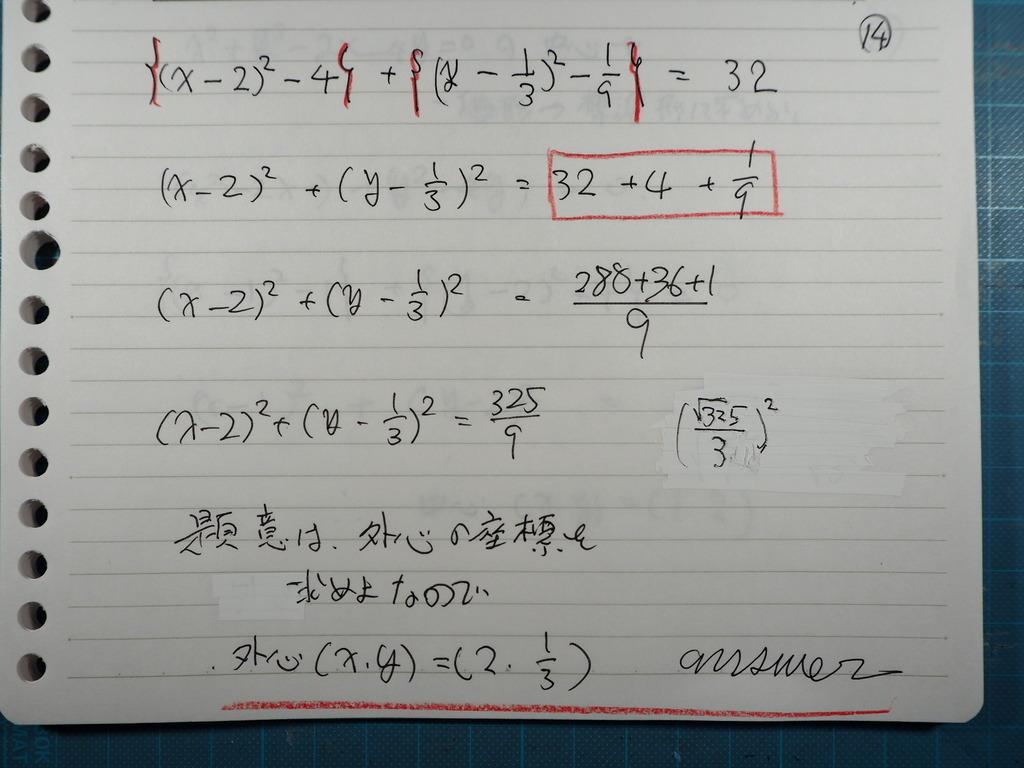 ⑭
{(x-2)²-4} + {(y-1/3)²-1/9} = 32
(x-2)² + (y-1/3)² = 32 +4 + 1/9
(x-2)² + (y-1/3)² = (288+36+1)/9
(x-2)² + (y-1/3)² = 325/9 (√325/3)²
題意は、外心の座標を
求めよなので、
外心(x.y)=(2.1/3) answer